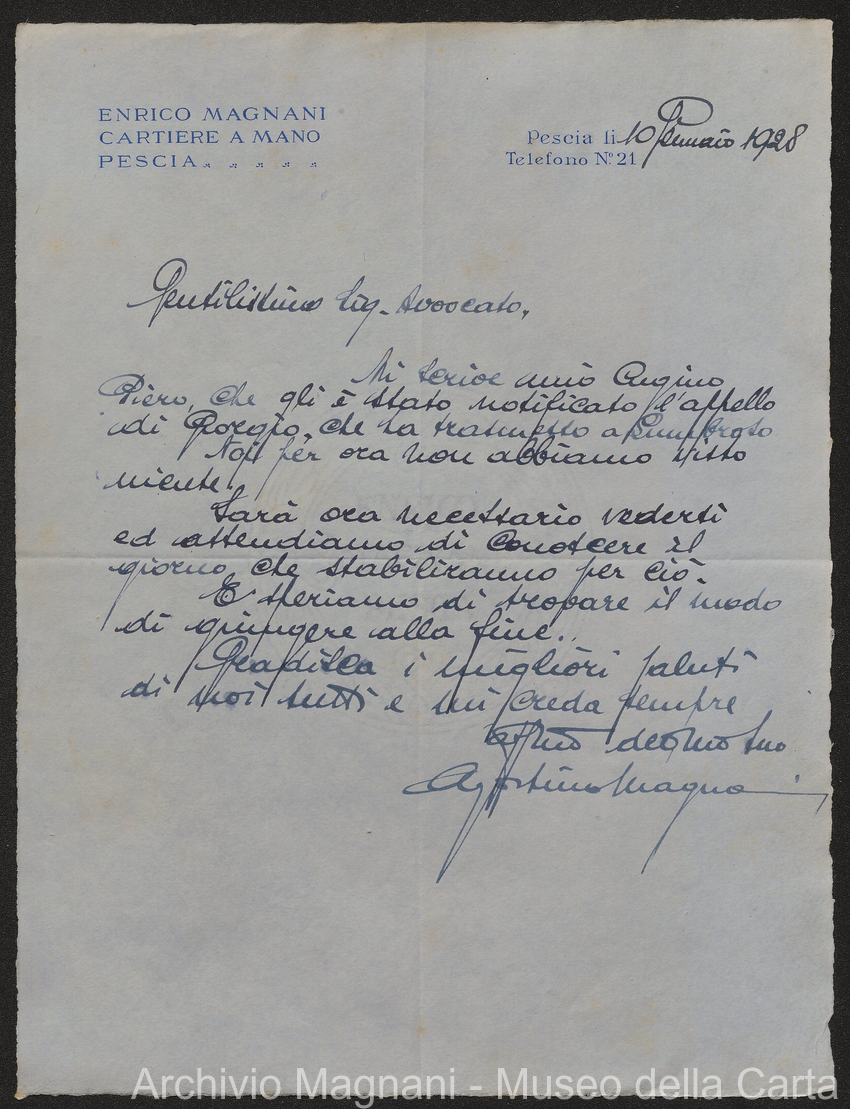 ENRICO MAGNANI
CARTIERE A MANO
PESCIA
Pescia li 10 Gennaio 1928
Telefono N.º 21
Gentilissimo Sig. Avvocato,
Mi scrive mio Cugino
Piero, che gli è stato notificato l'appello
di Giorgio, che ha trasmesso a Lumbroso
Noi per ora non abbiamo visto
niente.
Sarà ora necessario vedersi
ed attendiamo di conoscere il
giorno che stabiliranno per ciò.
E speriamo di trovare il modo
di giungere alla fine.
Gradisca i migliori saluti
di noi tutti e mi creda sempre
devmo suo
Agostino Magnani
Archivio Magnani - Museo della Carta